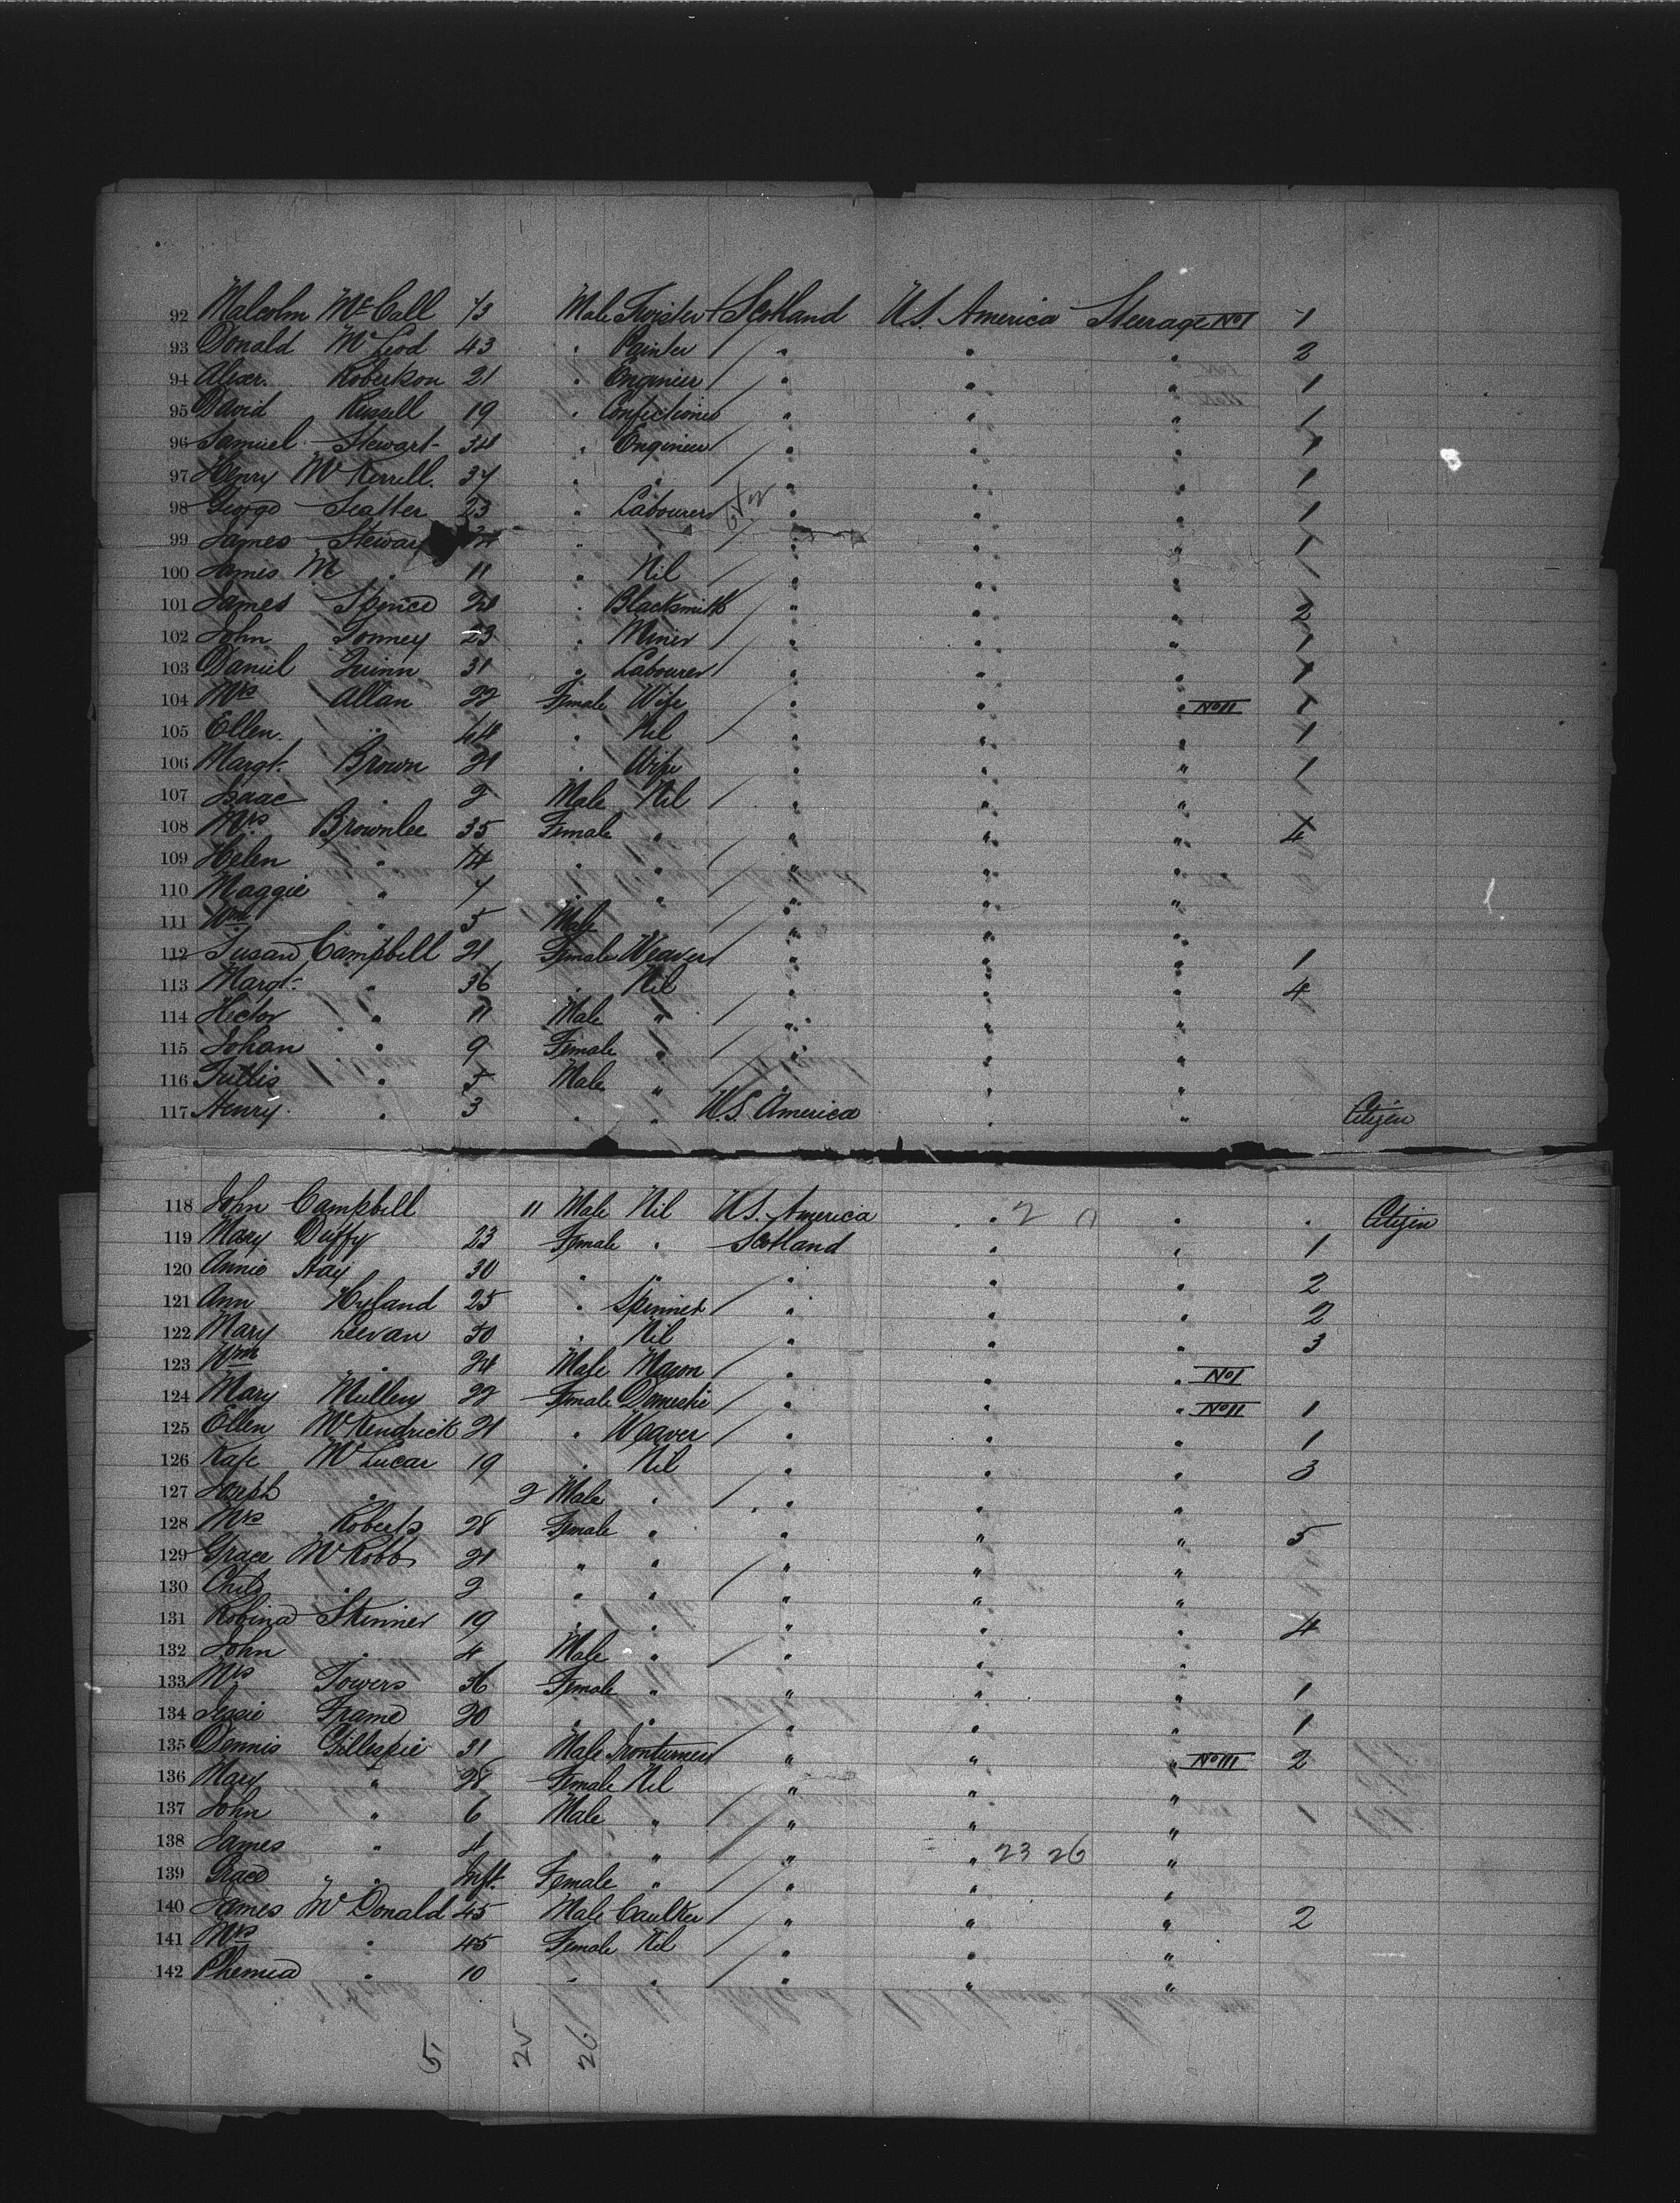 92 Malcolm McCall 43 Male Twister Scotland U.S. America Steerage No I 1
93 Donald McLeod 43 " Painter " " " 2
94 Alexr. Robertson 21 " Engineer " " " 1
95 David Russell 19 " Confectioner " " " 1
96 Samuel Stewart 34 " Engineer " " " 1
97 Henry McKerrell. 37 " " " " " 1
98 George Scatter 23 " Labourer " " " 1
99 James Stewart " " " " " 1
100 James M " 11 " Nil " " "
101 James Spence 24 " Blacksmith " " " 2
102 John Tonney 23 " Miner " " " 1
103 Daniel Quinn 31 " Labourer " " " 1
104 Mrs Allan 22 Female Wife " " " No II 1
105 Ellen. " 44 " Nil " " " 1
106 Margt. Brown 21 " Wife " " " 1
107 Isaac " 2 Male Nil " " "
108 Mrs. Brownlee 35 Female " " " " 4
109 Helen " 14 " " " " "
110 Maggie " 7 " " " " "
111 Wm " 5 Male " " "
112 Susan Campbell 21 Female Weaver " " " 1
113 Margt. " 36 " Nil " " " 4
114 Hector " 11 Male " " " "
115 Johan " 9 Female " " " "
116 Tullis " 5 Male " " " "
117 Henry. " 3 " " U.S. America " " Citizen
118 John Campbell 11 Male Nil U.S. America " 2 " " Citizen
119 Mary Duffy 23 Female " Scotland " " 1
120 Annie Hay 30 " " " " " 2
121 Ann Hyland 25 " Spinner " " " 2
122 Mary Leevan 50 " Nil " " " 3
123 Wm " 24 Male Mason " " " No I
124 Mary Mullen 22 Female Domestic " " " No II 1
125 Ellen McKendrick 21 " Weaver " " " 1
126 Kate McLucar 19 " Nil " " " 3
127 Joseph " 2 Male " " " "
128 Mrs Roberts 28 Female " " " " 5
129 Grace McRobb 21 " " " " "
130 Child " 2 " " " " "
131 Robina Skinner 19 " " " " " 4
132 John " 4 Male " " " "
133 Mrs Towers 36 Female " " " " 1
134 Jessie Frame 20 " " " " " 1
135 Dennis Gillespie 31 Male Ironturner " " " No III 2
136 Mary " 28 Female Nil " " "
137 John " 6 Male " " " "
138 James " 4 " " " 23 26 "
139 Grace " Inft. Female " " " "
140 James McDonald 45 Male Caulker " " " 2
141 Mrs " 45 Female Nil " " "
142 Phemia " 10 " " " " "
5 25 26